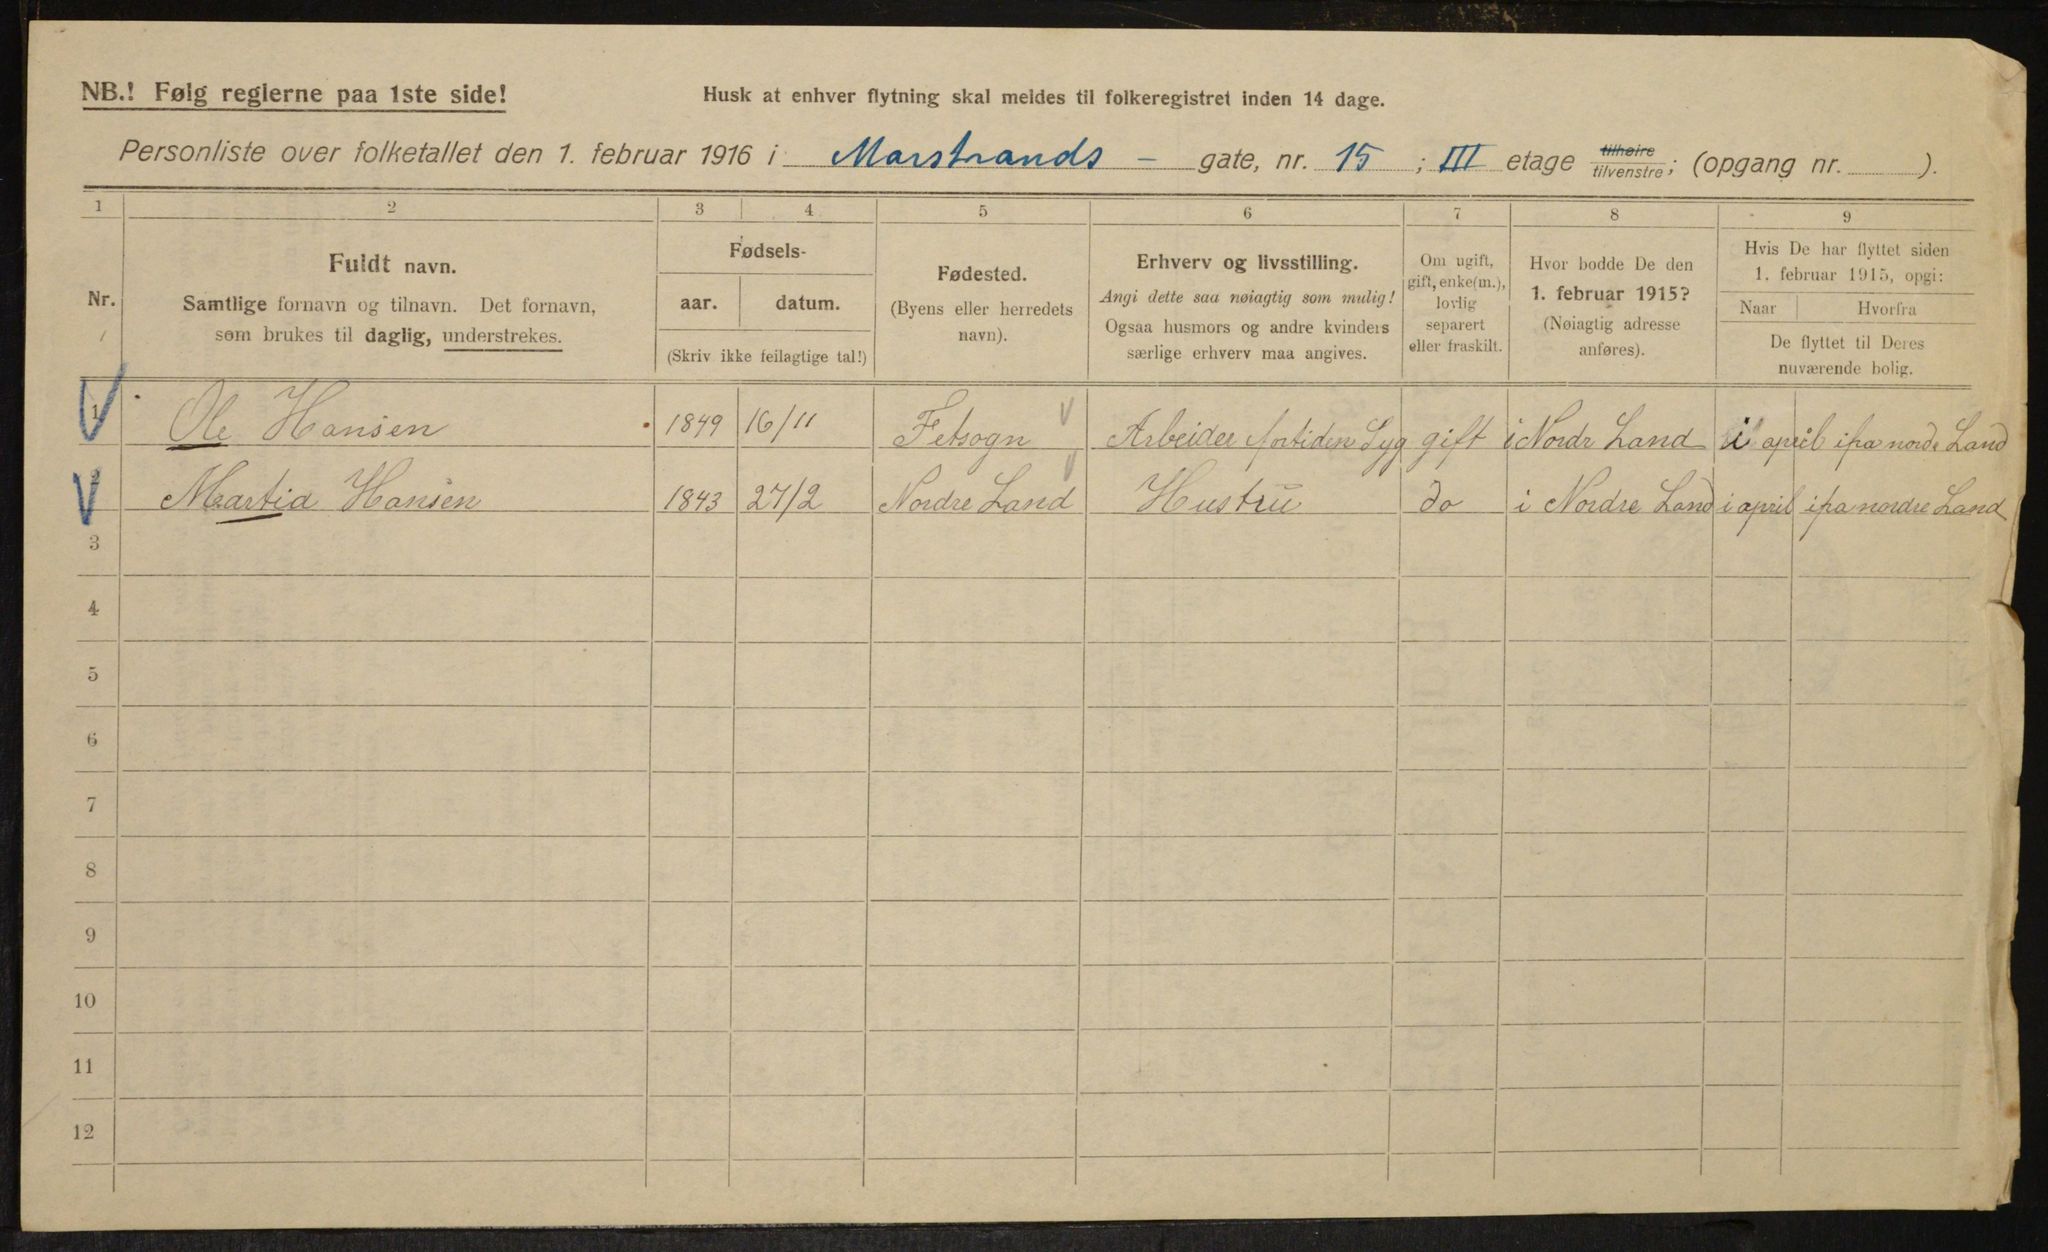 NB.! Følg reglerne paa 1ste side!
Husk at enhver flytning skal meldes til folkeregistret inden 14 dage.
Personliste over folketallet den 1. februar 1916 i Marstrands - gate, nr. 15 ; III etage tilhøire tilvenstre; (opgang nr. ).
1 2 3 4 5 6 7 8 9
Nr.
Fuldt navn.
Samtlige fornavn og tilnavn. Det fornavn,
som brukes til daglig, understrekes.
Fødsels-
aar. datum.
(Skriv ikke feilagtige tal!)
Fødested.
(Byens eller herredets
navn).
Erhverv og livsstilling.
Angi dette saa nøiagtig som mulig!
Ogsaa husmors og andre kvinders
særlige erhverv maa angives.
Om ugift,
gift, enke(m.),
lovlig
separert
eller fraskilt.
Hvor bodde De den
1. februar 1915?
(Nøiagtig adresse
anføres).
Hvis De har flyttet siden
1. februar 1915, opgi:
Naar Hvorfra
De flyttet til Deres
nuværende bolig.
1 Ole Hansen 1849 16/11 Fetsogn Arbeider fortiden Syg gift i Nordr Land i april ifra nordr Land
2 Martia Hansen 1843 27/2 Nordre Land Hustrū do i Nordre Land i april ifra nordre Land
3
4
5
6
7
8
9
10
11
12